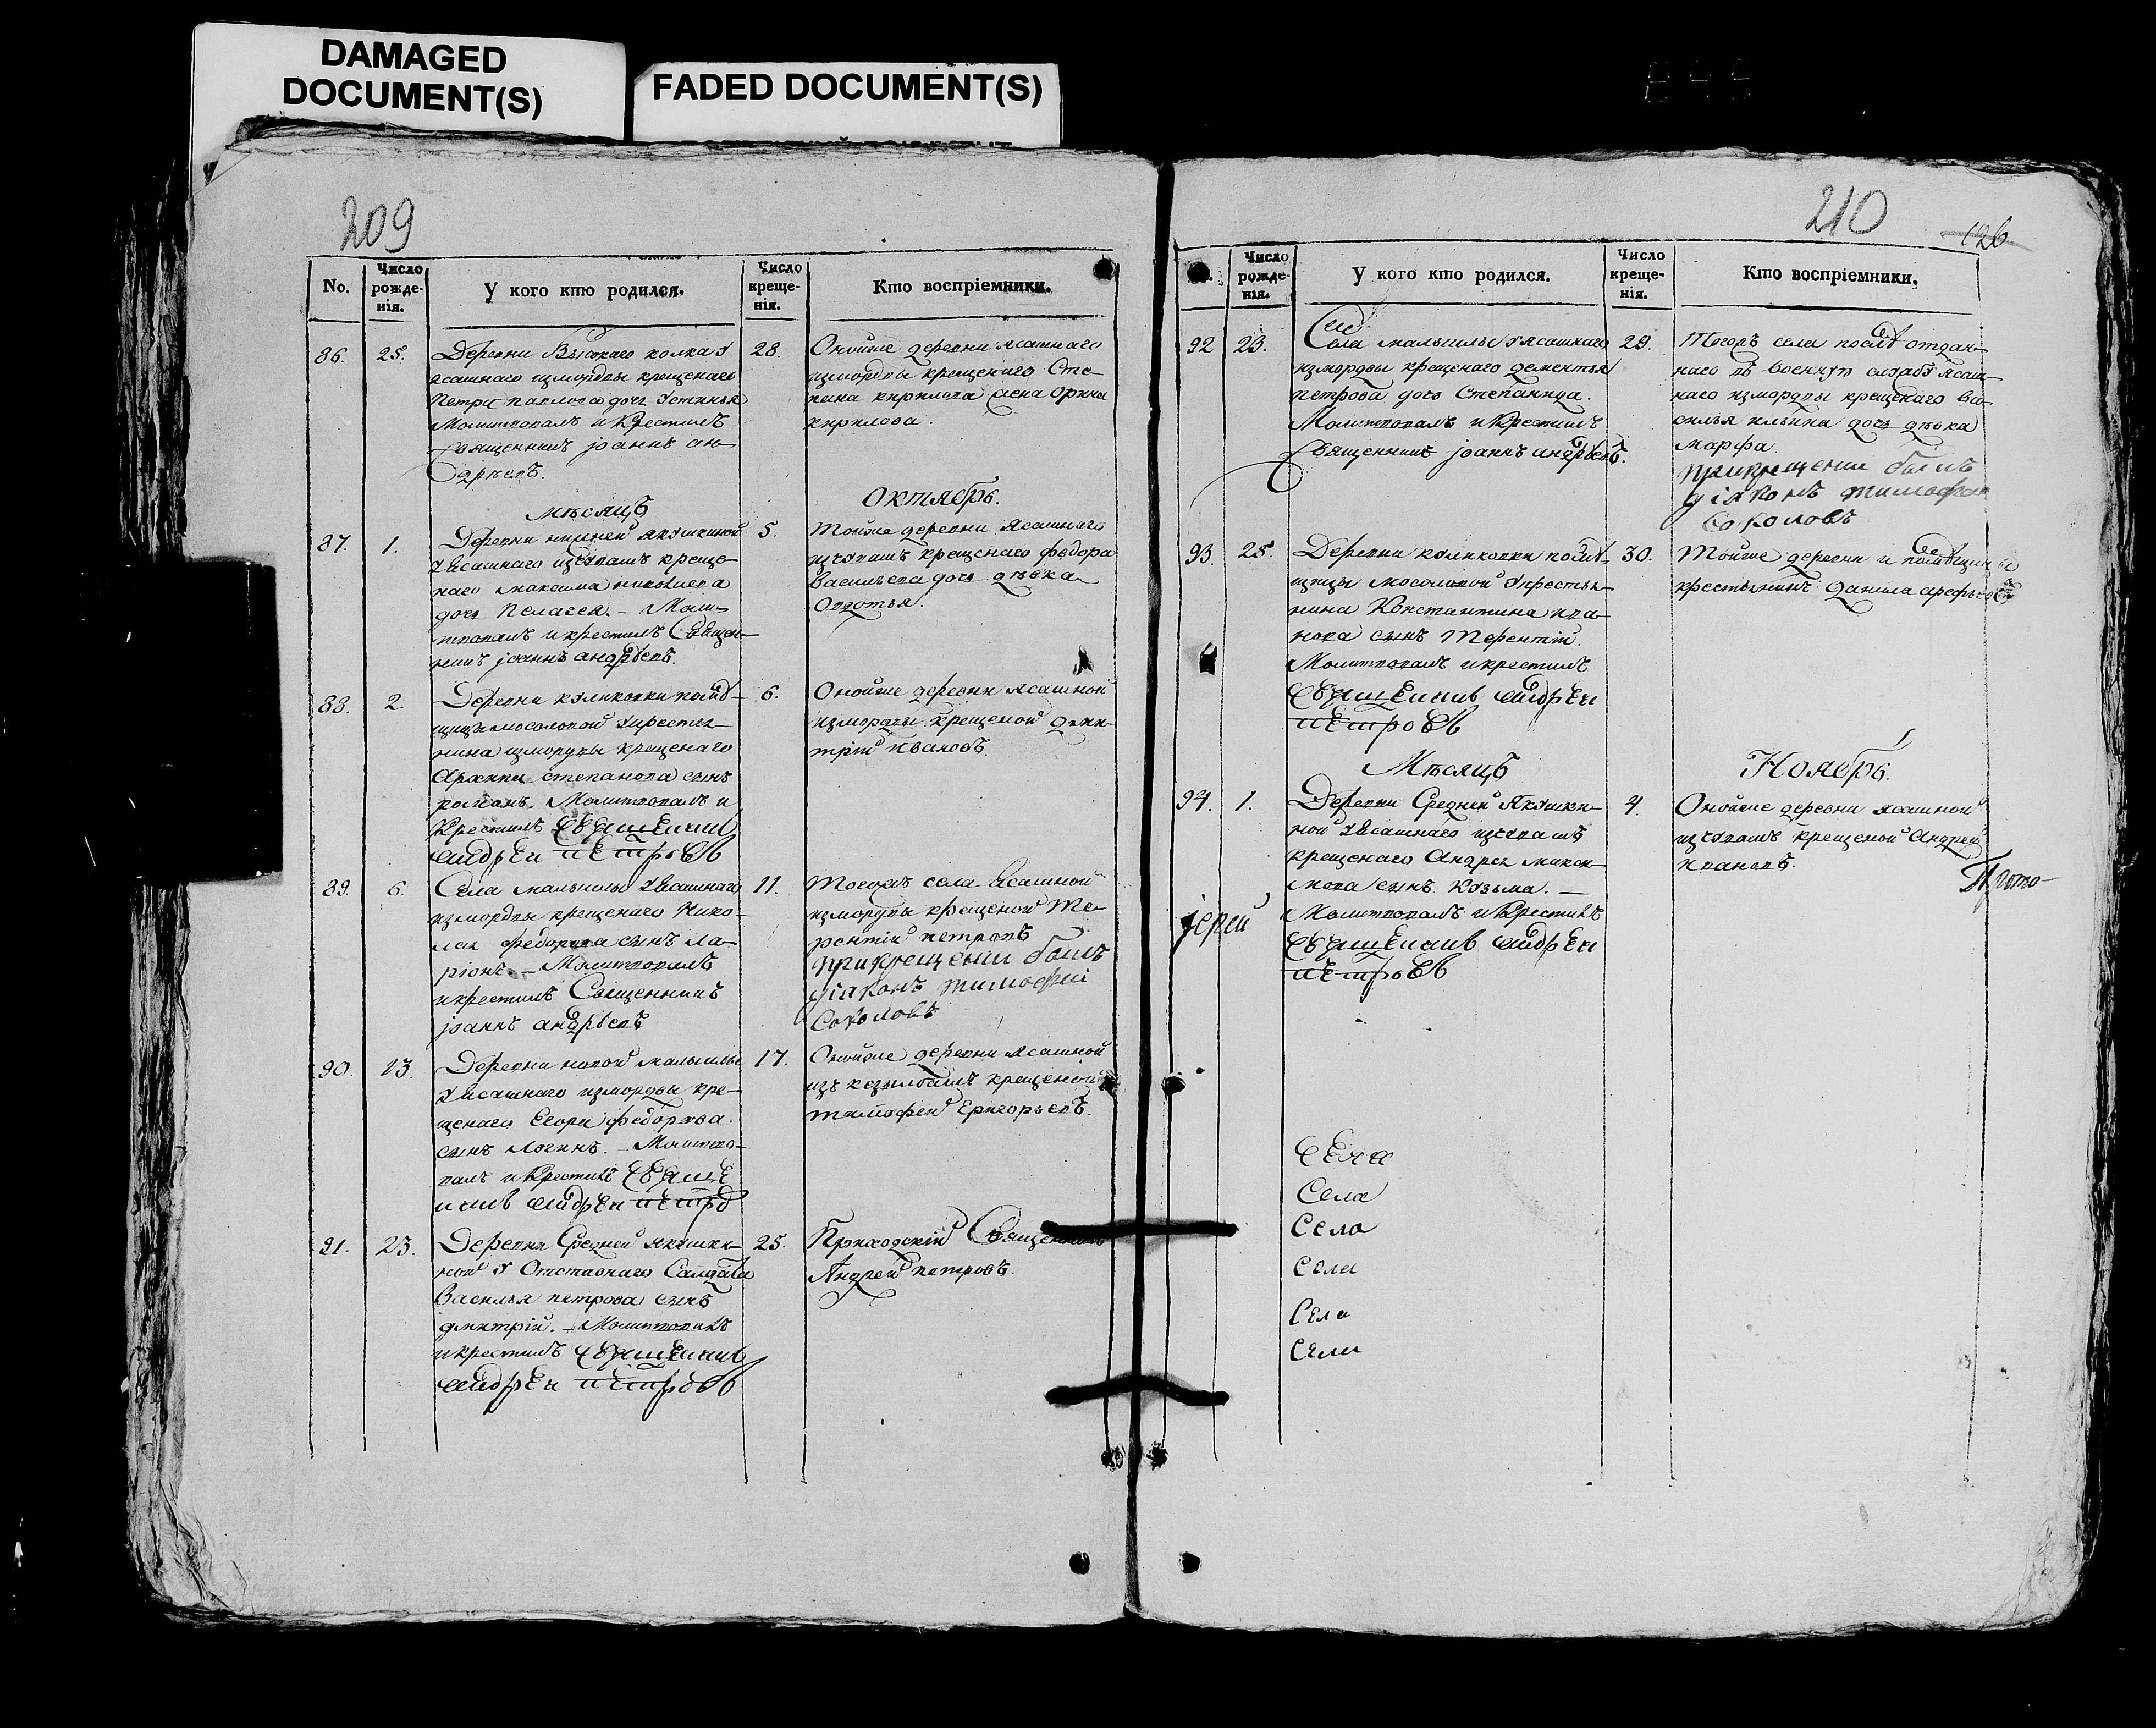 DAMAGED
DOCUMENT(S)
FADED DOCUMENT(S)
209
No.
Число
рожде-
нія.
У кого кто родился.
Число
креще-
нія.
Кто воспріемники.
86. 25.
Деревни Высокаго колка У
ясашнаго измордвы крещенаго
Петра павлова дочь Устинья
Молитвовалъ и Крестилъ
Священникъ јоаннъ ан-
дрѣевъ.
28.
Оной же деревни ясашнаго
измордвы крещенаго Сте-
пана кирилова жена Орина
кирилова.
мѣсяцъ Октябрь.
87. 1.
Деревни нижней якушкиной
Уясашнаго изчювашъ креще-
наго максима николаева
дочь Пелагея. - Моли-
твовалъ и крестилъ Священ-
никъ јоаннъ андрѣевъ.
5.
Той же деревни ясашнаго
изчювашъ крещенаго федора
васильева дочь дѣвка
Овдотья.
88. 2.
Деревни куликовки помѣ-
щицы мосоловой Укрестья-
нина измордвы крещенаго
степанова сынъ
романъ. Молитвовалъ и
Крестилъ священникъ
андрей петровъ
6.
Оной же деревни ясашной
измордвы крещеной дми-
трій ивановъ
89. 6.
Села малыклы Уясашнаго
измордвы крещенаго Нико-
лая федорова сынъ ла-
ріонъ. - Молитвовалъ
и крестилъ Священникъ
јоаннъ андрѣевъ
11.
Тогожъ села ясашной
измордвы крещеной Те-
рентій петровъ
прикрещеніи былъ
діаконъ тимофей
Соколовъ
90. 13.
Деревни новой малыклы
Уясашнаго измордвы кре-
щенаго Егора федорова
сынъ логинъ. - Молитво-
валъ и Крестилъ священ
никъ андрей петро
17.
Оной же деревни ясашной
крещеной
тимофей Григорьевъ.
91. 23.
Деревни Средней якушки-
ной У Отставнаго Салдата
Василья петрова сынъ
дмитрій. - Молитвовалъ
и крестилъ священникъ
андрей петровъ
25.
Приходскій Священникъ
Андрей петровъ.
210
126
Число
рожде-
нія.
У кого кто родился.
Число
креще-
нія.
Кто воспріемники.
92 23.
Села малыклы Уясашнаго
измордвы крещенаго дементья
петрова дочь Степанида.
Молитвовалъ и Крестилъ
Священникъ јоаннъ андрѣевъ.
29.
Тогожъ села послѣ отдан-
наго въ военную службу ясаш-
наго измордвы крещенаго ва-
силья ильина дочь дѣвка
марфа.
прикрещеніи былъ
діаконъ тимофей
Соколовъ
93. 25.
Деревни куликовки помѣ-
щицы мосоловой Укрестья-
нина Константина ива-
нова сынъ Терентій.
Молитвовалъ и крестилъ
священникъ андрей
петровъ
30.
Той же деревни и помѣщицы
крестьянинъ данила арефьевъ
Мѣсяцъ Ноябрь.
94. 1.
Деревни Средней Якушки-
ной Уясашнаго изчювашъ
крещенаго Андрея макси-
мова сынъ козьма. -
Молитвовалъ и Крестилъ
священникъ андрей
петровъ
4.
Оной же деревни ясашной
изчювашъ крещеной Андрей
ивановъ.
Прото-
јерей
Села
Села
Села
Села
Села
Села